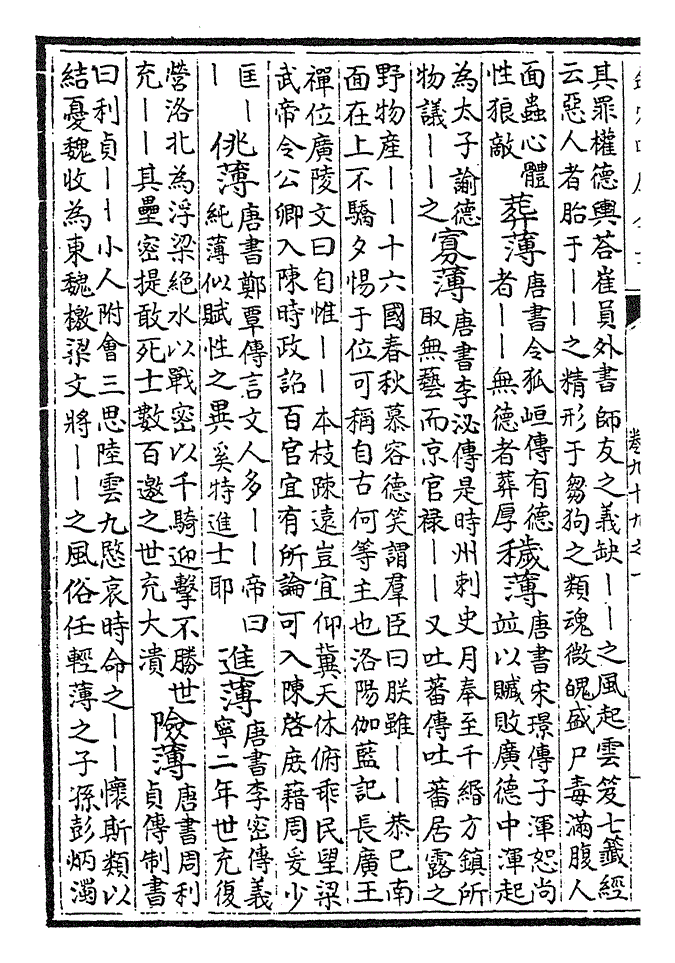 其罪權德輿荅崔員外書師友之義缺——之風起雲笈七籤經
云惡人者胎于——之精形于芻狗之類魂微魄盛尸毒滿腹人
面蟲心體
性狼敵
葬薄
唐書令狐峘傳有德
者——無德者葬厚
穢薄
唐書宋璟傳子渾恕尚
竝以贓敗廣德中渾起
為太子諭德
物議——之
寡薄
唐書李泌傳是時州刺史月奉至千緡方鎮所
取無藝而京官禄——又吐蕃傳吐蕃居露之
野物産——十六國春秋慕容德笑謂羣臣曰朕雖——恭已南
面在上不驕夕惕于位可稱自古何等主也洛陽伽藍記長廣王
禪位廣陵文曰自惟——本枝疎遠豈宜仰冀天休俯乖民望梁
武帝令公卿入陳時政詔百官宜有所論可入陳啓庶藉周爰少
匡—
—
佻薄
唐書鄭覃傳言文人多——帝曰
純薄似賦性之異奚特進士耶
進薄
唐書李密傳義
寧二年世充復
營洛北為浮梁絶水以戰密以千騎迎擊不勝世
充——其壘密提敢死士數百邀之世充大潰
險薄
唐書周利
貞傳制書
曰利貞——小人附會三思陸雲九愍哀時命之——懷斯類以
結憂魏收為東魏檄梁文將——之風俗任輕薄之子孫彭炳濁
卷九十九之一